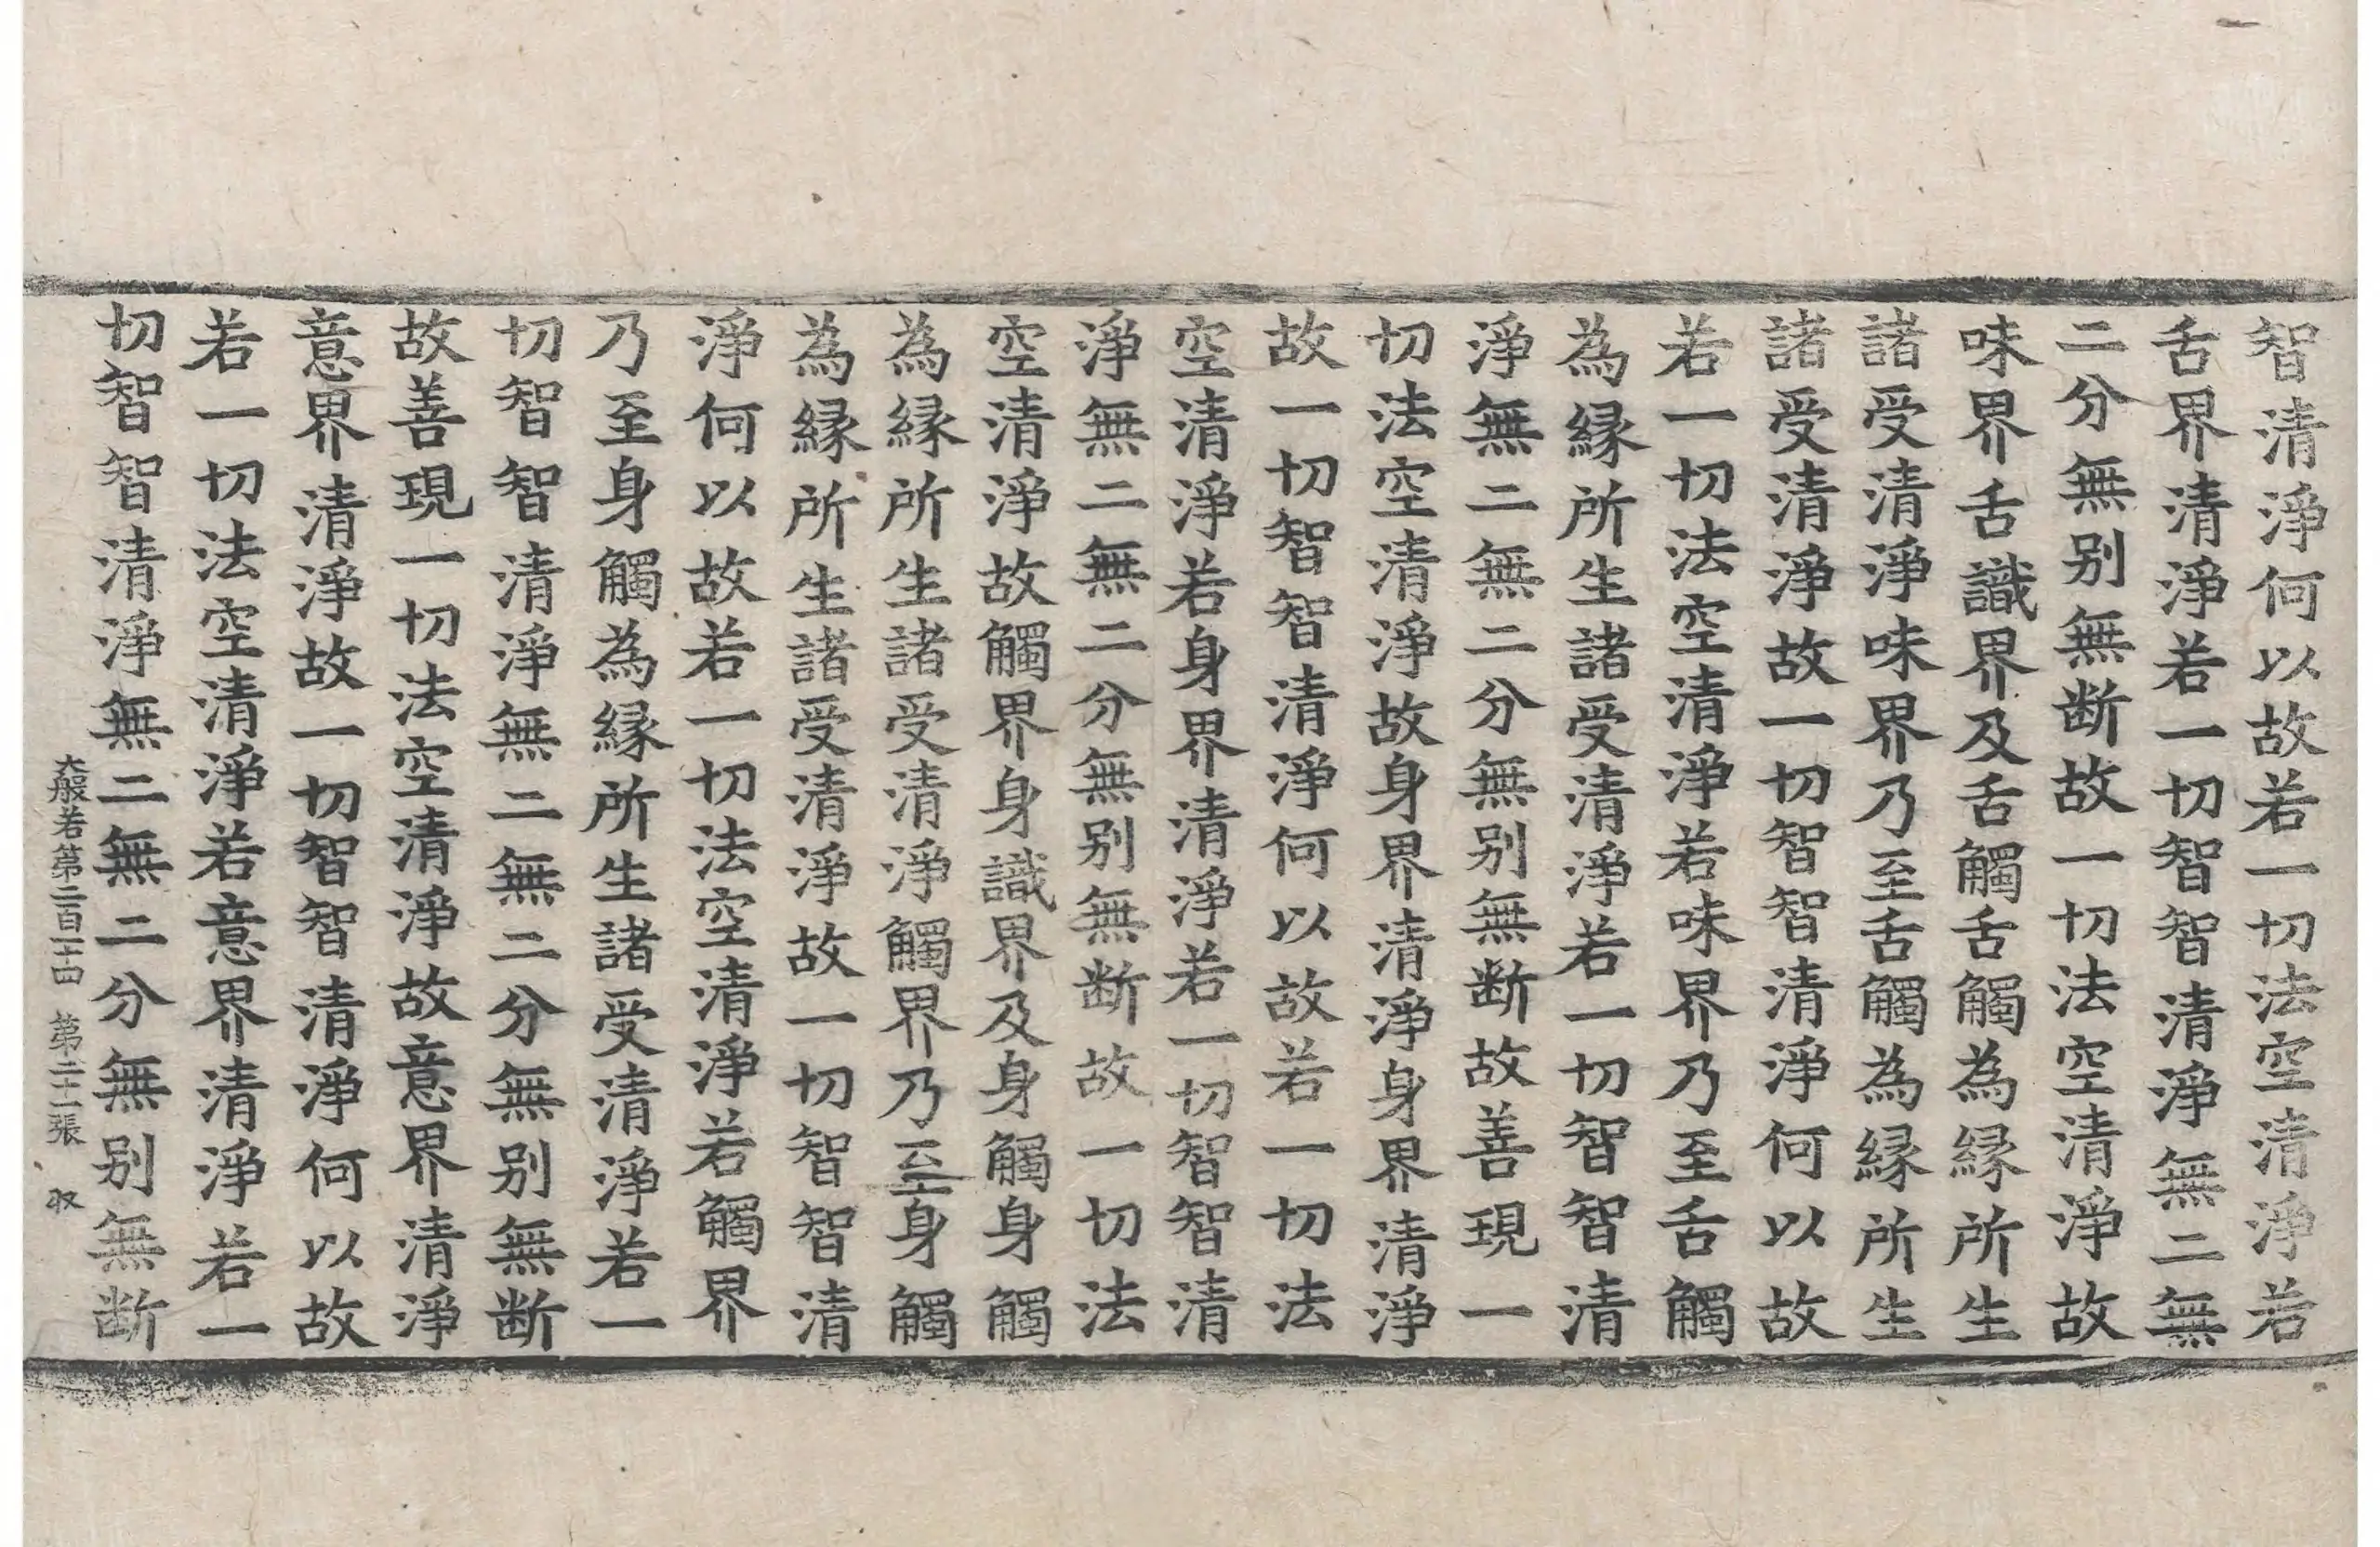 智清淨何以故若一切法空清淨若
舌界清淨若一切智智清淨無二無
二分無别無断故一切法空清淨故
味界舌識界及舌觸舌觸為縁所生
諸受清淨味界乃至舌觸為縁所生
諸受清淨故一切智智清淨何以故
若一切法空清淨若味界乃至舌觸
為縁所生諸受清淨若一切智智清
淨無二無二分無别無断故善現一
切法空清淨故身界清淨身界清淨
故一切智智清淨何以故若一切法
空清淨若身界清淨若一切智智清
淨無二無二分無别無断故一切法
空清淨故觸界身識界及身觸身觸
為縁所生諸受清淨觸界乃至身觸
為縁所生諸受清淨故一切智智清
淨何以故若一切法空清淨若觸界
乃至身觸為縁所生諸受清淨若一
切智智清淨無二無二分無别無断
故善現一切法空清淨故意界清淨
意界清淨故一切智智清淨何以故
若一切法空清淨若意界清淨若一
切智智清淨無二無二分無别無断
大般若第二百二十四 第二十二張 収